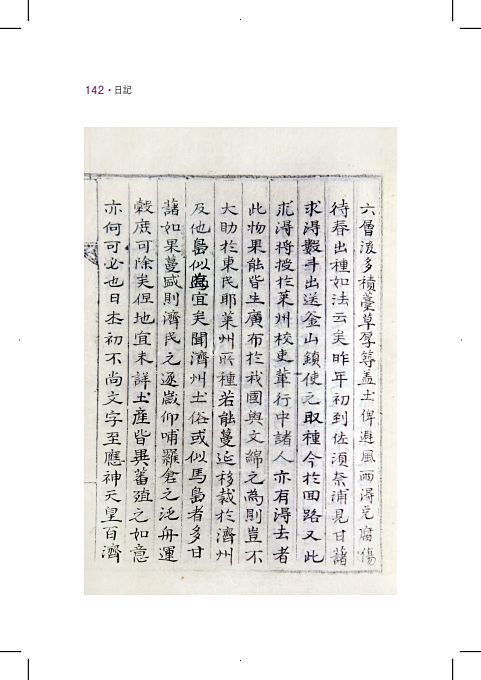 142・日記
六層後多積藁草厚等盖土俾避風雨得免腐傷
待春出種如法云矣昨年初到佐須奈浦見甘藷
求得數斗出送釜山鎭使之取種今於回路又此
求得將授於萊州校吏輩行中諸人亦有得去者
此物果能皆生廣布於我國與文綿之為則豈不
大助於東民耶萊州所種若能蔓延移裁於濟州
及他島似為宜矣聞濟州土俗或似馬島者多甘
藷如果蔓盛則濟民之逐歲仰哺羅倉之泛舟運
穀庶可除矣但地宜未詳土産皆異蕃殖之如意
亦何可必也日本初不尚文字至應神天皇百濟